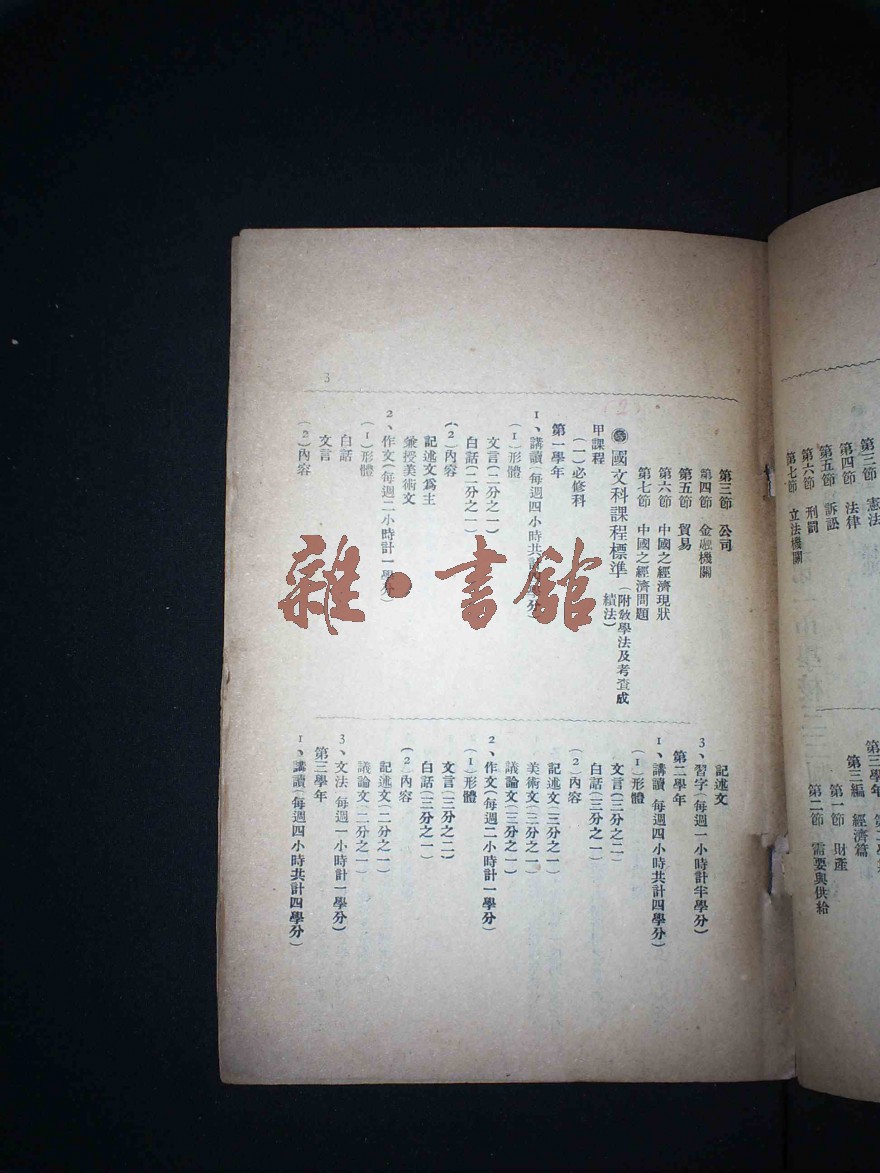 第三節 憲法
第四節 法律
第五節 訴訟
第六節 刑罰
第七節 立法機關
第三學年
第三編 經濟篇
第一節 財產
第二節 需要與供給
第三節 公司
第四節 金融機關
第五節 貿易
第六節 中國之經濟現狀
第七節 中國之經濟問題
國文科課程標準(附教學法及考查成
績法)
甲課程
(一)必修科
第一學年
1、講讀(每週四小時共計四學分)
(1)形體
文言(二分之一)
白話(二分之一)
(2)內容
記述文為主
兼授美術文
2、作文(每週二小時計一學分)
(1)形體
白話
文言
(2)內容
記述文
3、習字(每週一小時計半學分)
第二學年
1、講讀(每週四小時共計四學分)
(1)形體
文言(三分之二)
白話(三分之一)
(2)內容
記述文(三分之一)
美術文(三分之一)
議論文(三分之一)
2、作文(每週二小時計一學分)
(1)形體
文言(三分之二)
白話(三分之一)
(2)內容
記述文(二分之一)
議論文(二分之一)
3、文法(每週一小時計一學分)
第三學年
1、講讀(每週四小時共計四學分)
3
雜·書館